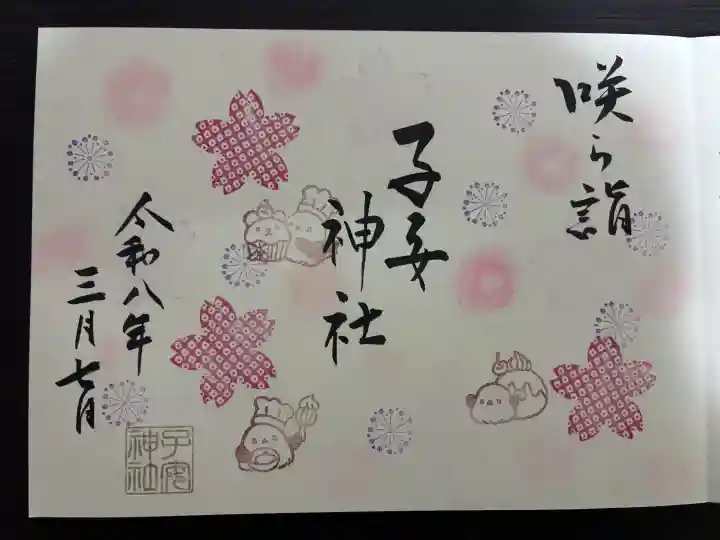 咲ら詣
子安
神社
令和八年
三月七日
子安
神社